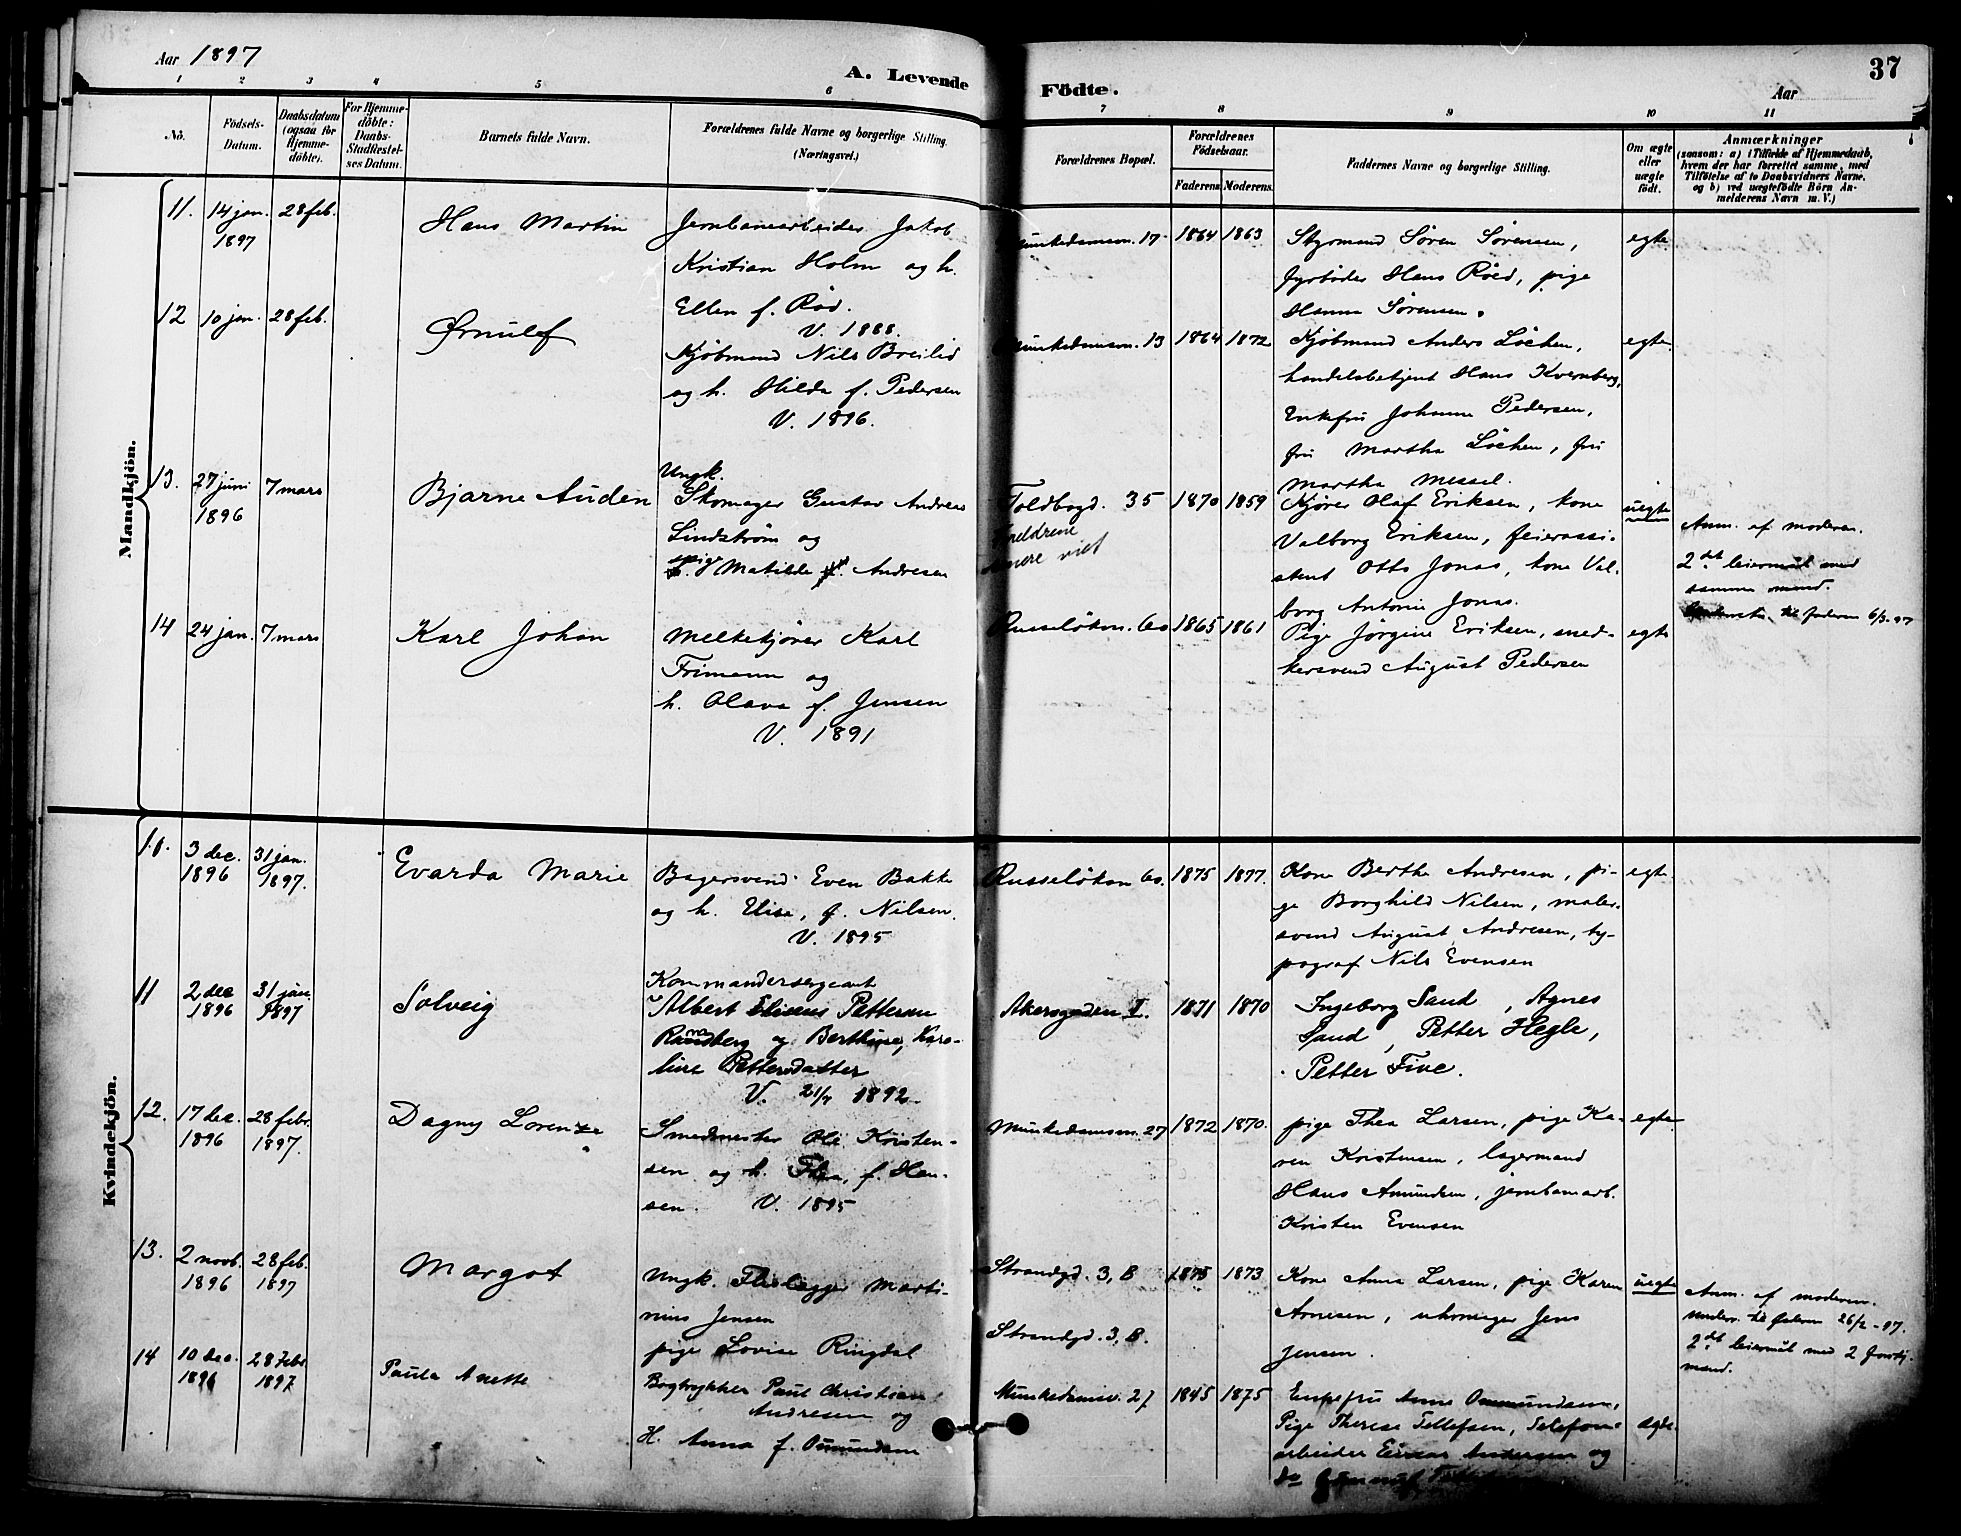 Aar 1897
A. Levende Födte.
37
Aar
1 2 3 4 5 6 7 8 9 10 11
Nö.
Födsels-Datum.
Daabsdatum (ogsaa för Hjemme-döbte).
For Hjemme-döbte: Daabs-Stadfæstel-ses Datum.
Barnets fulde Navn.
Forældrenes fulde Navne og borgerlige Stilling. (Næringsvei.)
Forældrenes Bopæl.
Forældrenes Födselsaar.
Faderens Moderens.
Faddernes Navne og borgerlige Stilling.
Om ægte eller uægte födt.
Anmærkninger
(saasom: a) i Tilfælde af Hjemmedaab,
hvem der har forrettet samme, med
Tilföielse af to Daabsvidners Navne,
og b) ved uægtefödte Börn An-
melderens Navn m. V.)
Mandkjön.
11. 14 jan. 1897 28 feb.
Hans Martin
Jernbanearbeider Jakob
Kristian Holm og h.
Ellen f. Rød.
V. 1888.
Munkedamsvn. 17 1864 1863
Styrmand Sören Sörensen,
fyrböder Hans Röed, pige
Hanna Sörensen.
egte
12 10 jan. 28 feb.
Ørnulf
Kjøbmand Nils Breilid
og h. Hilda f. Pedersen
V. 1896.
Munkedamsvn. 13 1864 1872
Kjøbmand Anders Löchen,
handelsbetjent Hans Kvernberg,
Enkefru Johanne Pedersen,
fru Martha Löchen, fru
Martha Messel.
egte.
13. 27 juni 1896 7 mars
Bjarne Auden
Ungk.
Skomager Gustav Andreas
Lindström og
pige Matilde Andresen
Toldbogd. 35 1870 1859
Foreldrene
senere viet
Kjörer Olaf Eriksen, kone
Valborg Eriksen, feierassi-
stent Otto Jonas, kone Val-
borg Antonie Jonas.
uegte
Anm. af moderen.
2det leiermål med
samme mand.
til faderen 6/3-97
14 24 jan. 7 mars
Karl Johan
Melkekjörer Karl
Frimann og
h. Olava f. Jensen
V. 1891
Russeløkvn. 60 1865 1861
Pige Jörgine Eriksen, sned-
kersvend August Pedersen
egte
Kvindekjön.
10. 3 dec. 1896 31 jan. 1897.
Evarda Marie
Bagersvend Even Bakke
og h. Elise, f. Nilsen.
V. 1895
Russeløkvn 60. 1875 1877.
Kone Berthe Andresen, pi-
ge Borghild Nilsen, maler-
svend August Andresen, ty-
pograf Nils Evensen
egte
11 2 dec 1896 31 jan. 1897
Solveig
Kommandersergeant
Albert Eliseus Pettersen
Randberg og Berthine, Karo-
line Pettersdatter
V. 21/7 1892
Akersgaden I. 1871 1870
Ingeborg Sand, Agnes
Sand, Petter Hegle,
Petter Five.
12. 17 dec. 1896 28 febr. 1897.
Dagny Lorentze
Smedmester Ole Kristen-
sen og h. Thea, f. Han-
sen. V. 1895
Munkedamsvn. 27 1872 1870.
pige Thea Larsen, pige Ka-
ren Kristensen, lagermand
Hans Amundsen, jernbanearb.
Kristen Evensen
egte.
13. 2 novb. 1896 28 feb. 1897
Margot
Ungk. Flislegger Marti-
nius Jensen
pige Lovise Ringdal
Strandgd. 3, B 1875 1873
Strandgd. 3, B.
Kone Anna Larsen, pige Karen
Arnesen, uhrmager Jens
Jensen.
uegte
Anm. af moderen.
underr. til faderen 26/2-97.
2det leiermål med 2 forskj.
mand.
14 10 dec. 1896 28 febr 1897
Paula Anette
Bogtrykker Paul Christian
Andresen og
H. Anna f. Omundsen
Munkedamsv. 27 1845 1875
Enkefru Anne Ommundsen,
Pige Therese Tellefsen, Telefon-
arbeider Einar Andersen og
do
ægte.